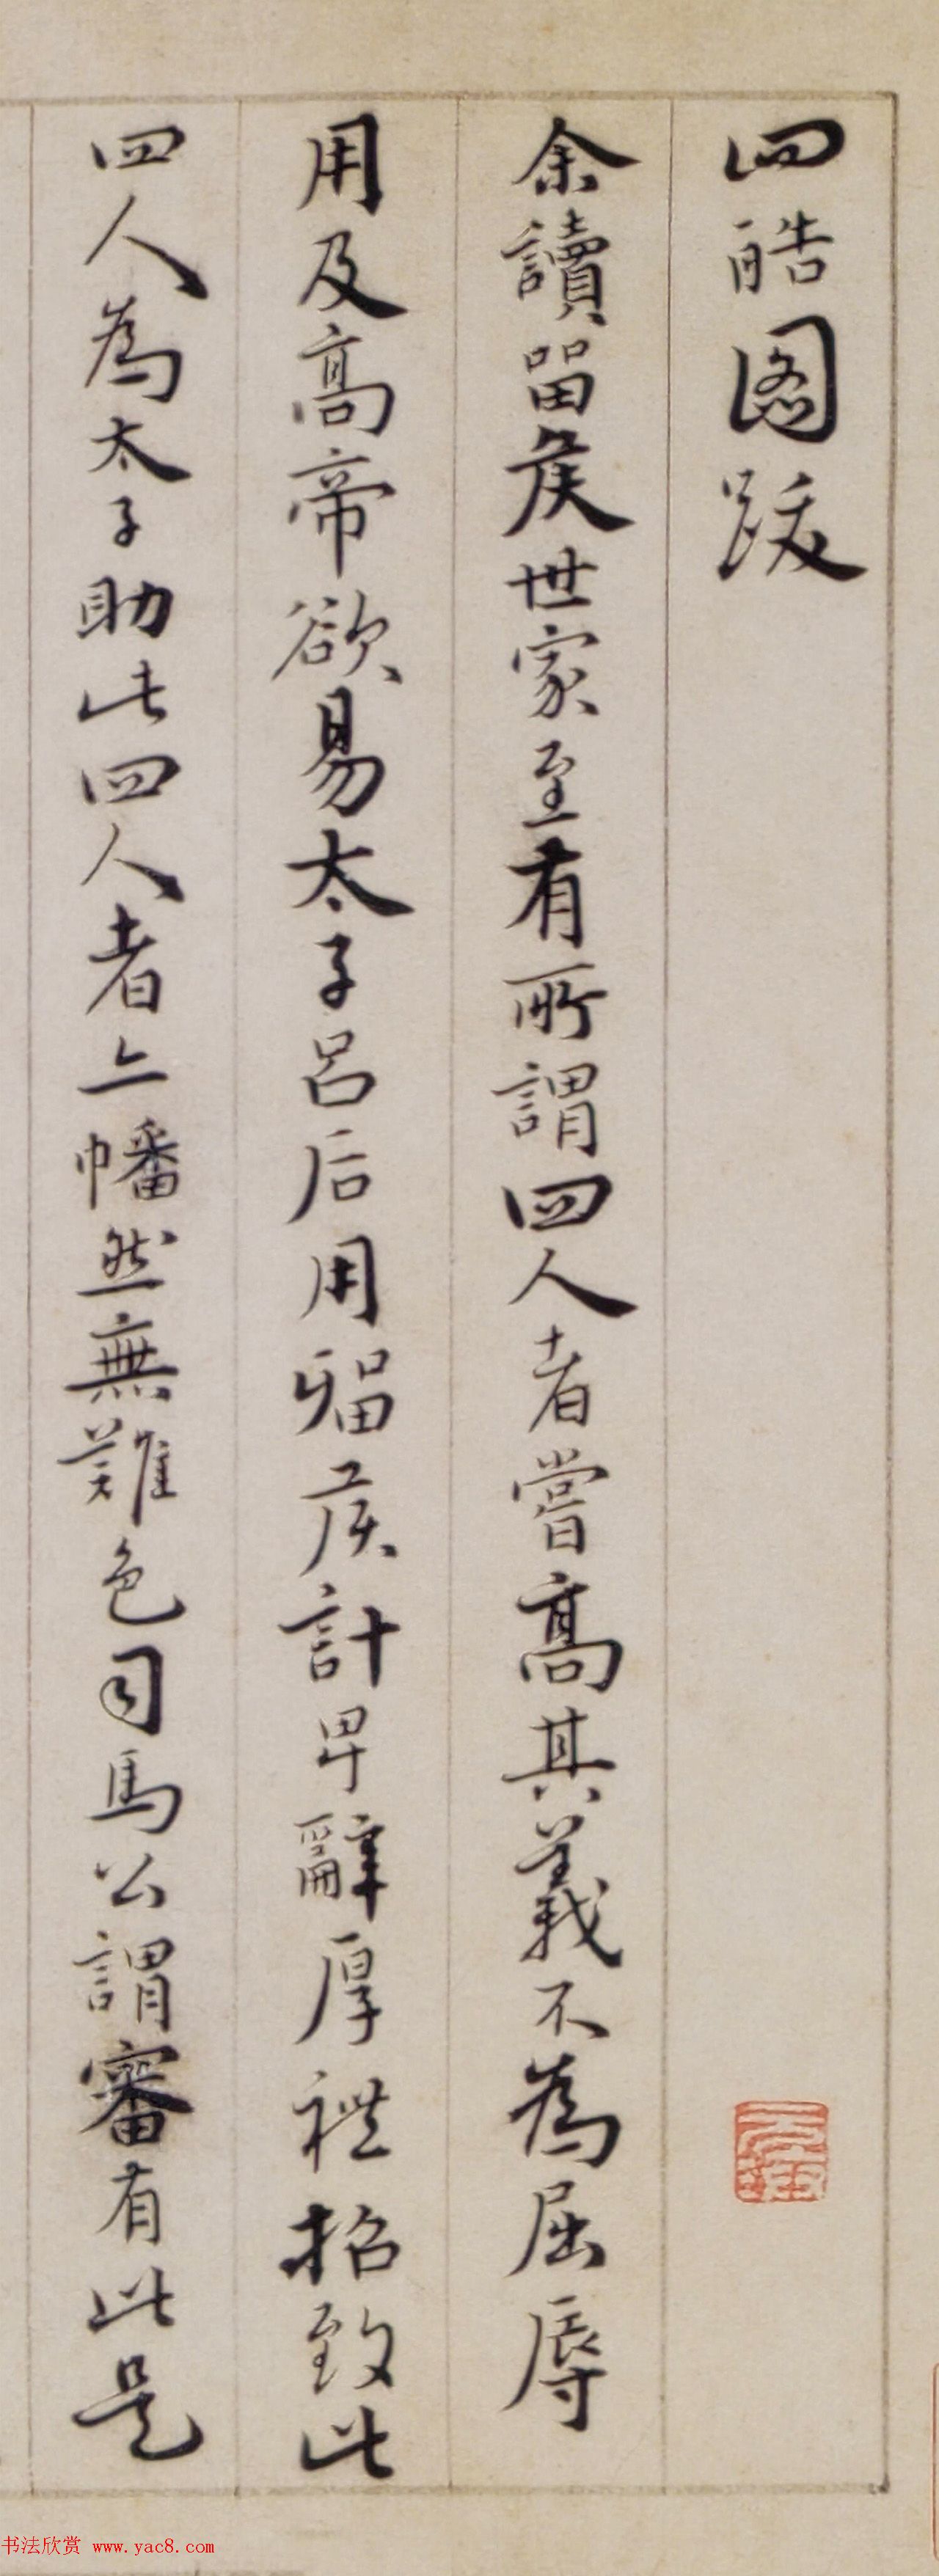 四皓圖跋
余讀留矦世家至有所謂四人者嘗高其義不為屈辱
用及高帝欲易太子呂后用留矦計卑辭厚禮招致此
四人為太子助此四人者亦幡然無難色司馬公謂審有此是
书法欣赏 www.yac8.com